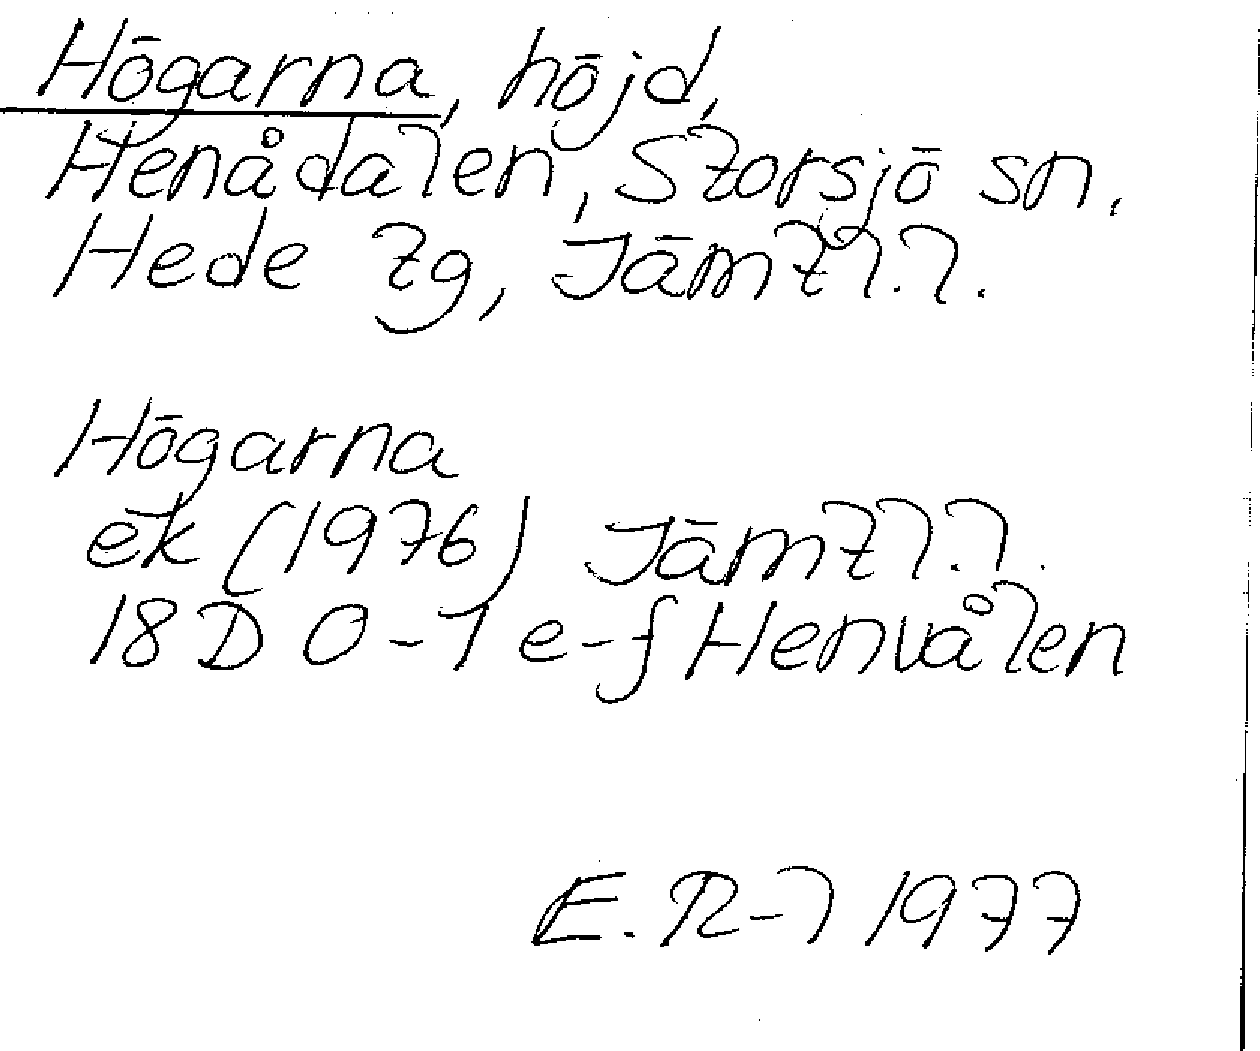 Högarna, höjd,
Henådalen, Storsjö sn.
Hede tg, Jämtl.l.
Högarna
ek (1976) Jämtl.l.
18D 0-1 e-f Henvålen
E.R-l 1977